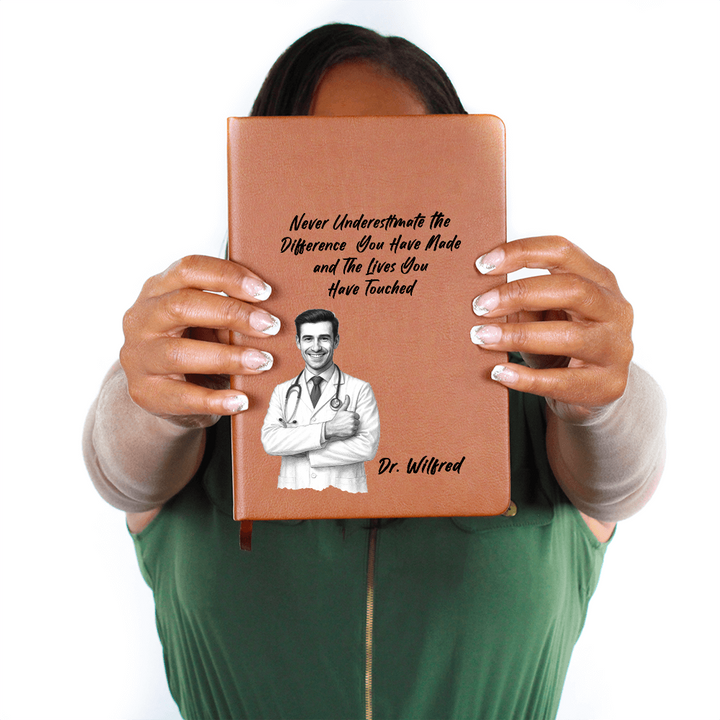 Never Underestimate the
Difference You Have Made
and The Lives You
Have Touched
Dr. Wilfred